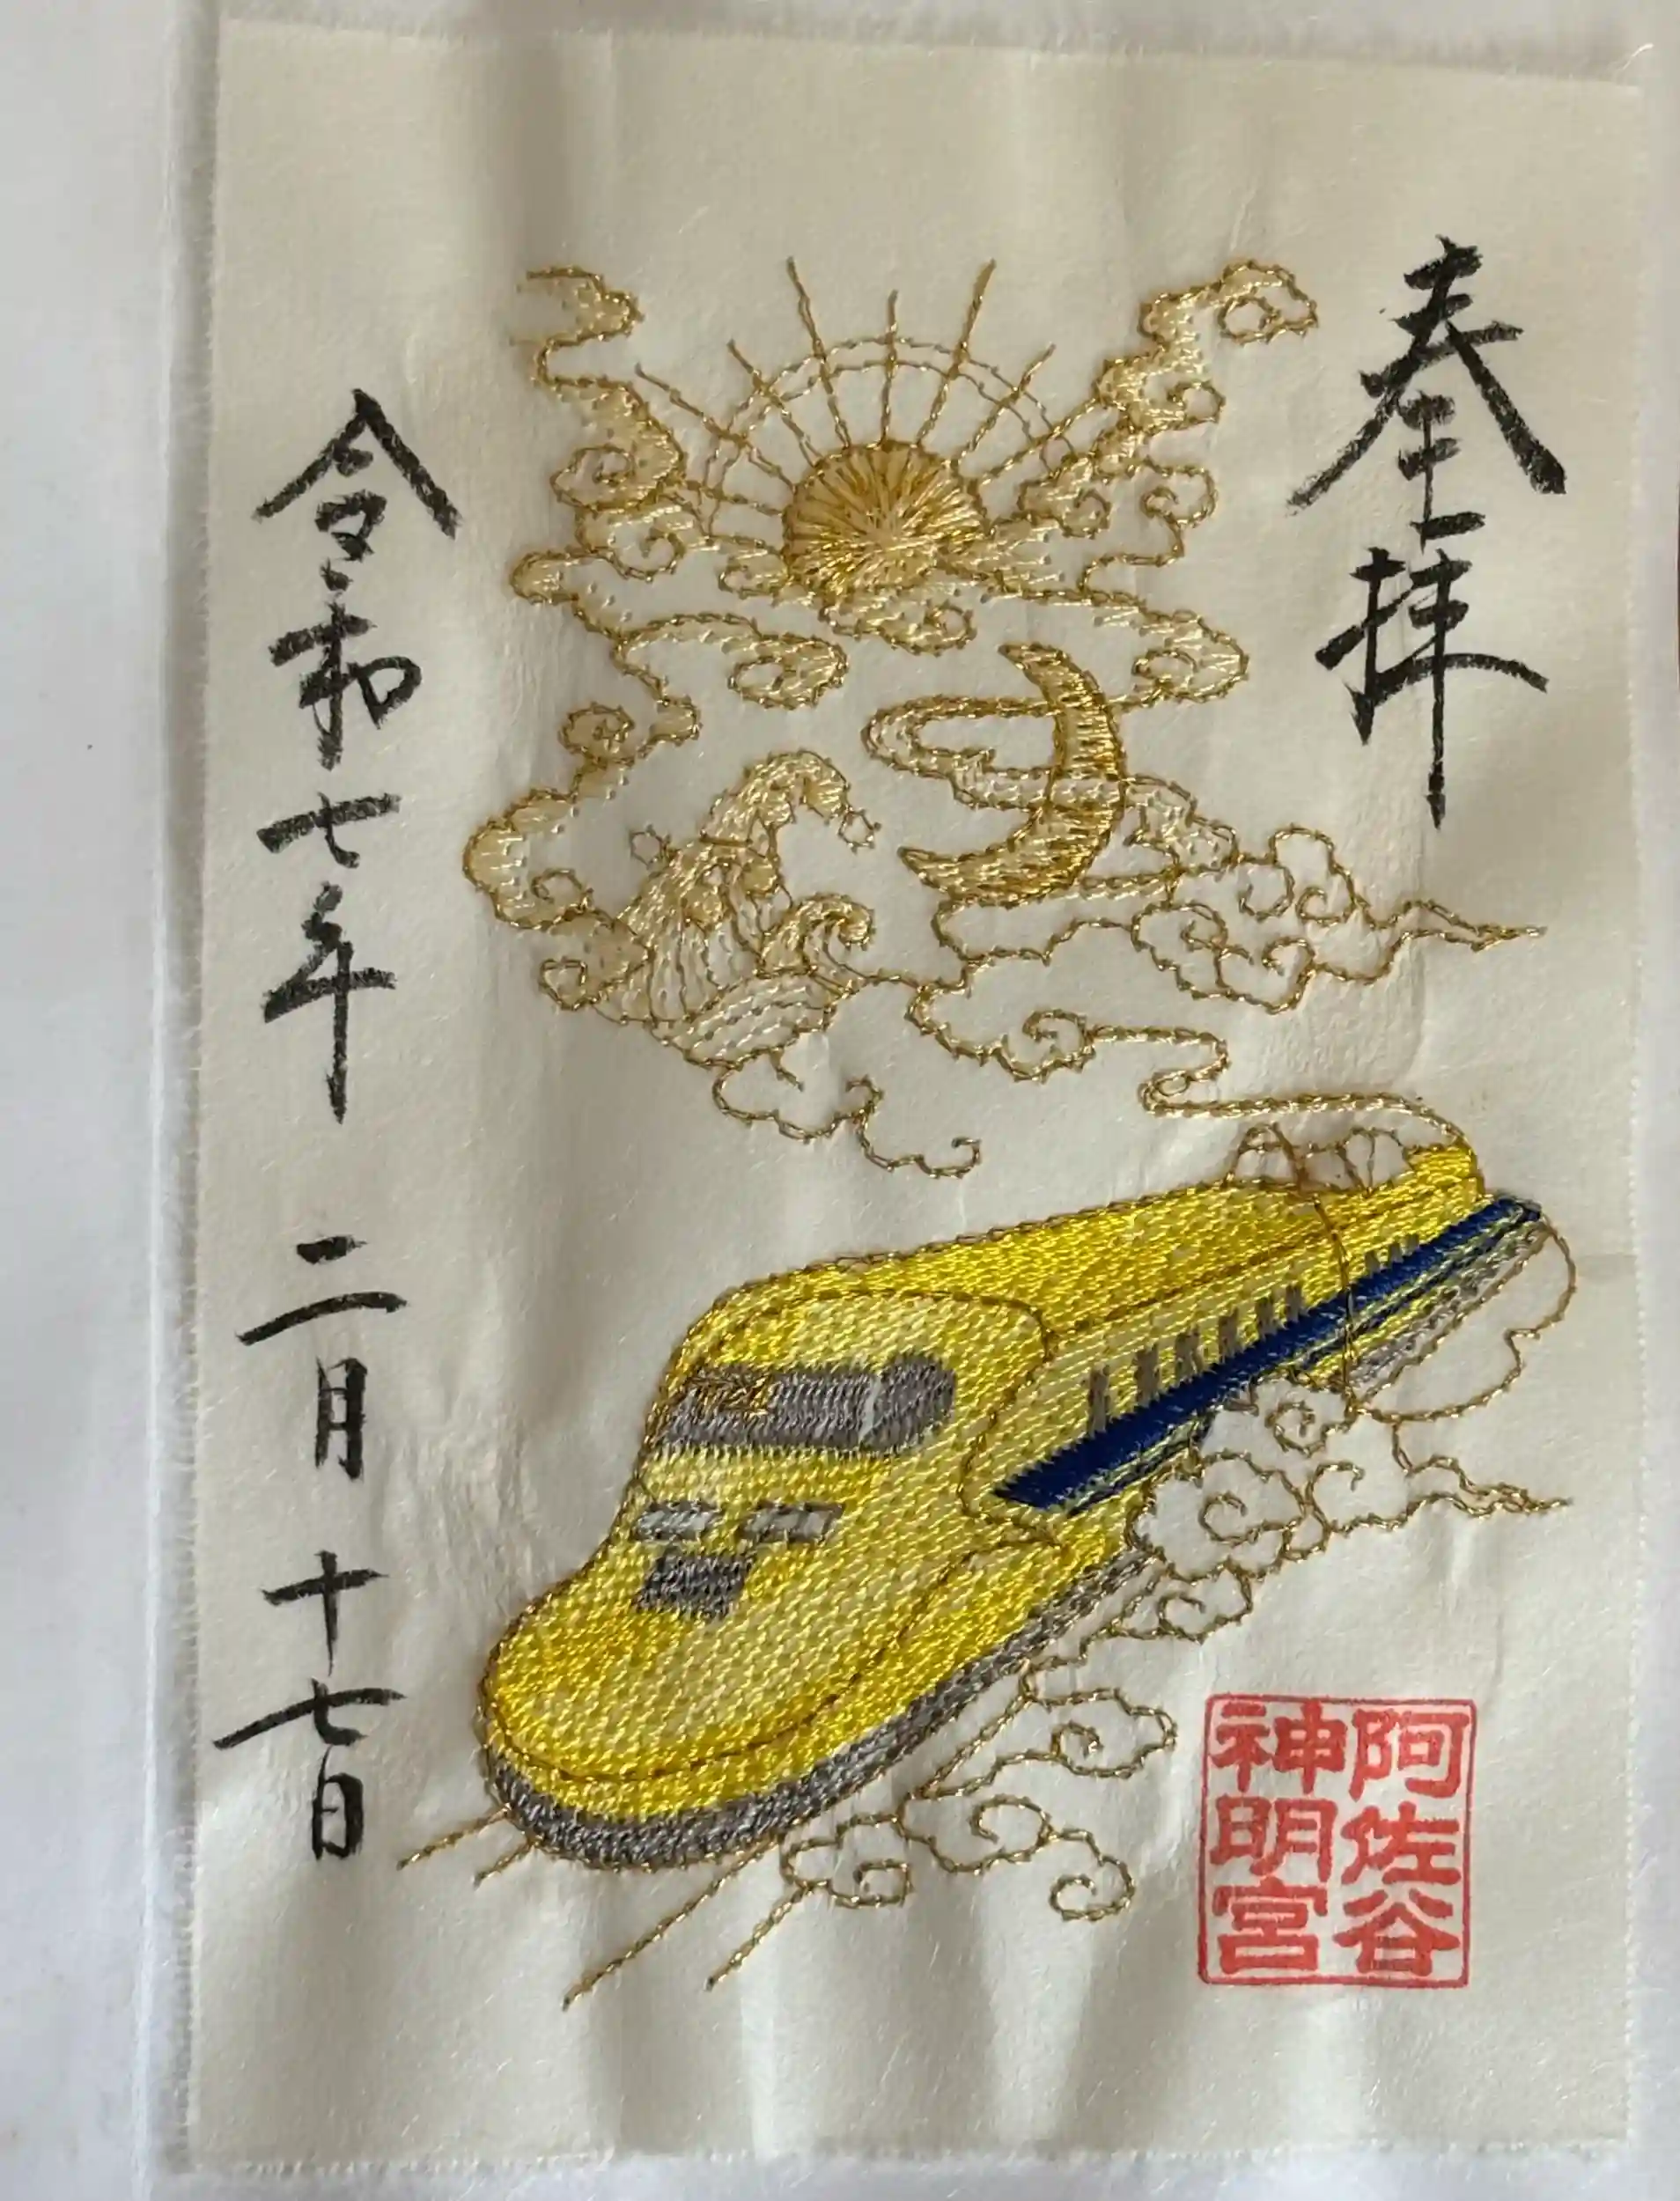 奉拝
阿佐谷
神明宮
令和七年 二月 十七日